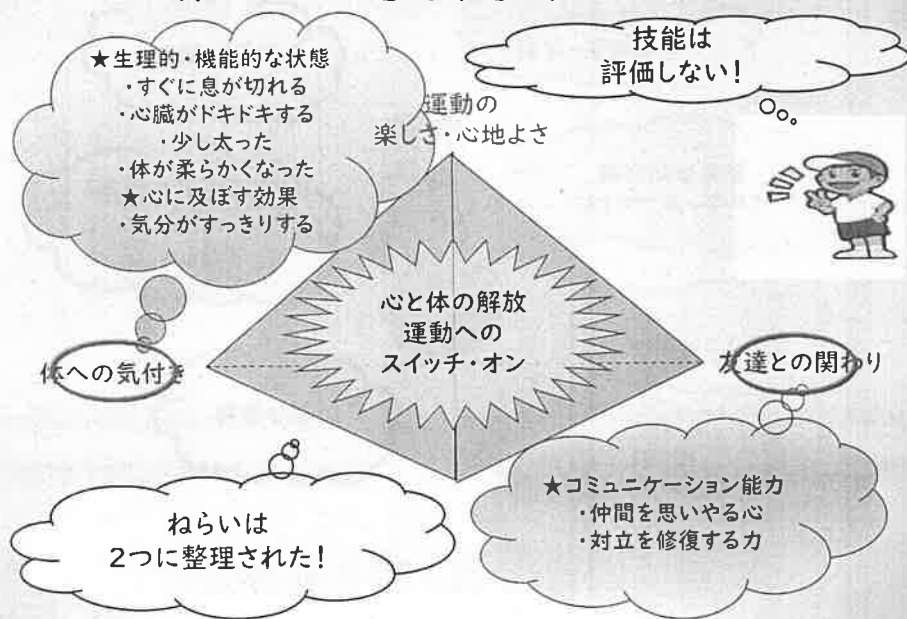 ★生理的・機能的な状態
・すぐに息が切れる
・心臓がドキドキする
・少し太った
・体が柔らかくなった
★心に及ぼす効果
・気分がすっきりする
技能は
評価しない!
運動の
楽しさ・心地よさ
心と体の解放
運動への
スイッチ・オン
体への気付き
友達との関わり
ねらいは
2つに整理された!
★コミュニケーション能力
・仲間を思いやる心
・対立を修復する力